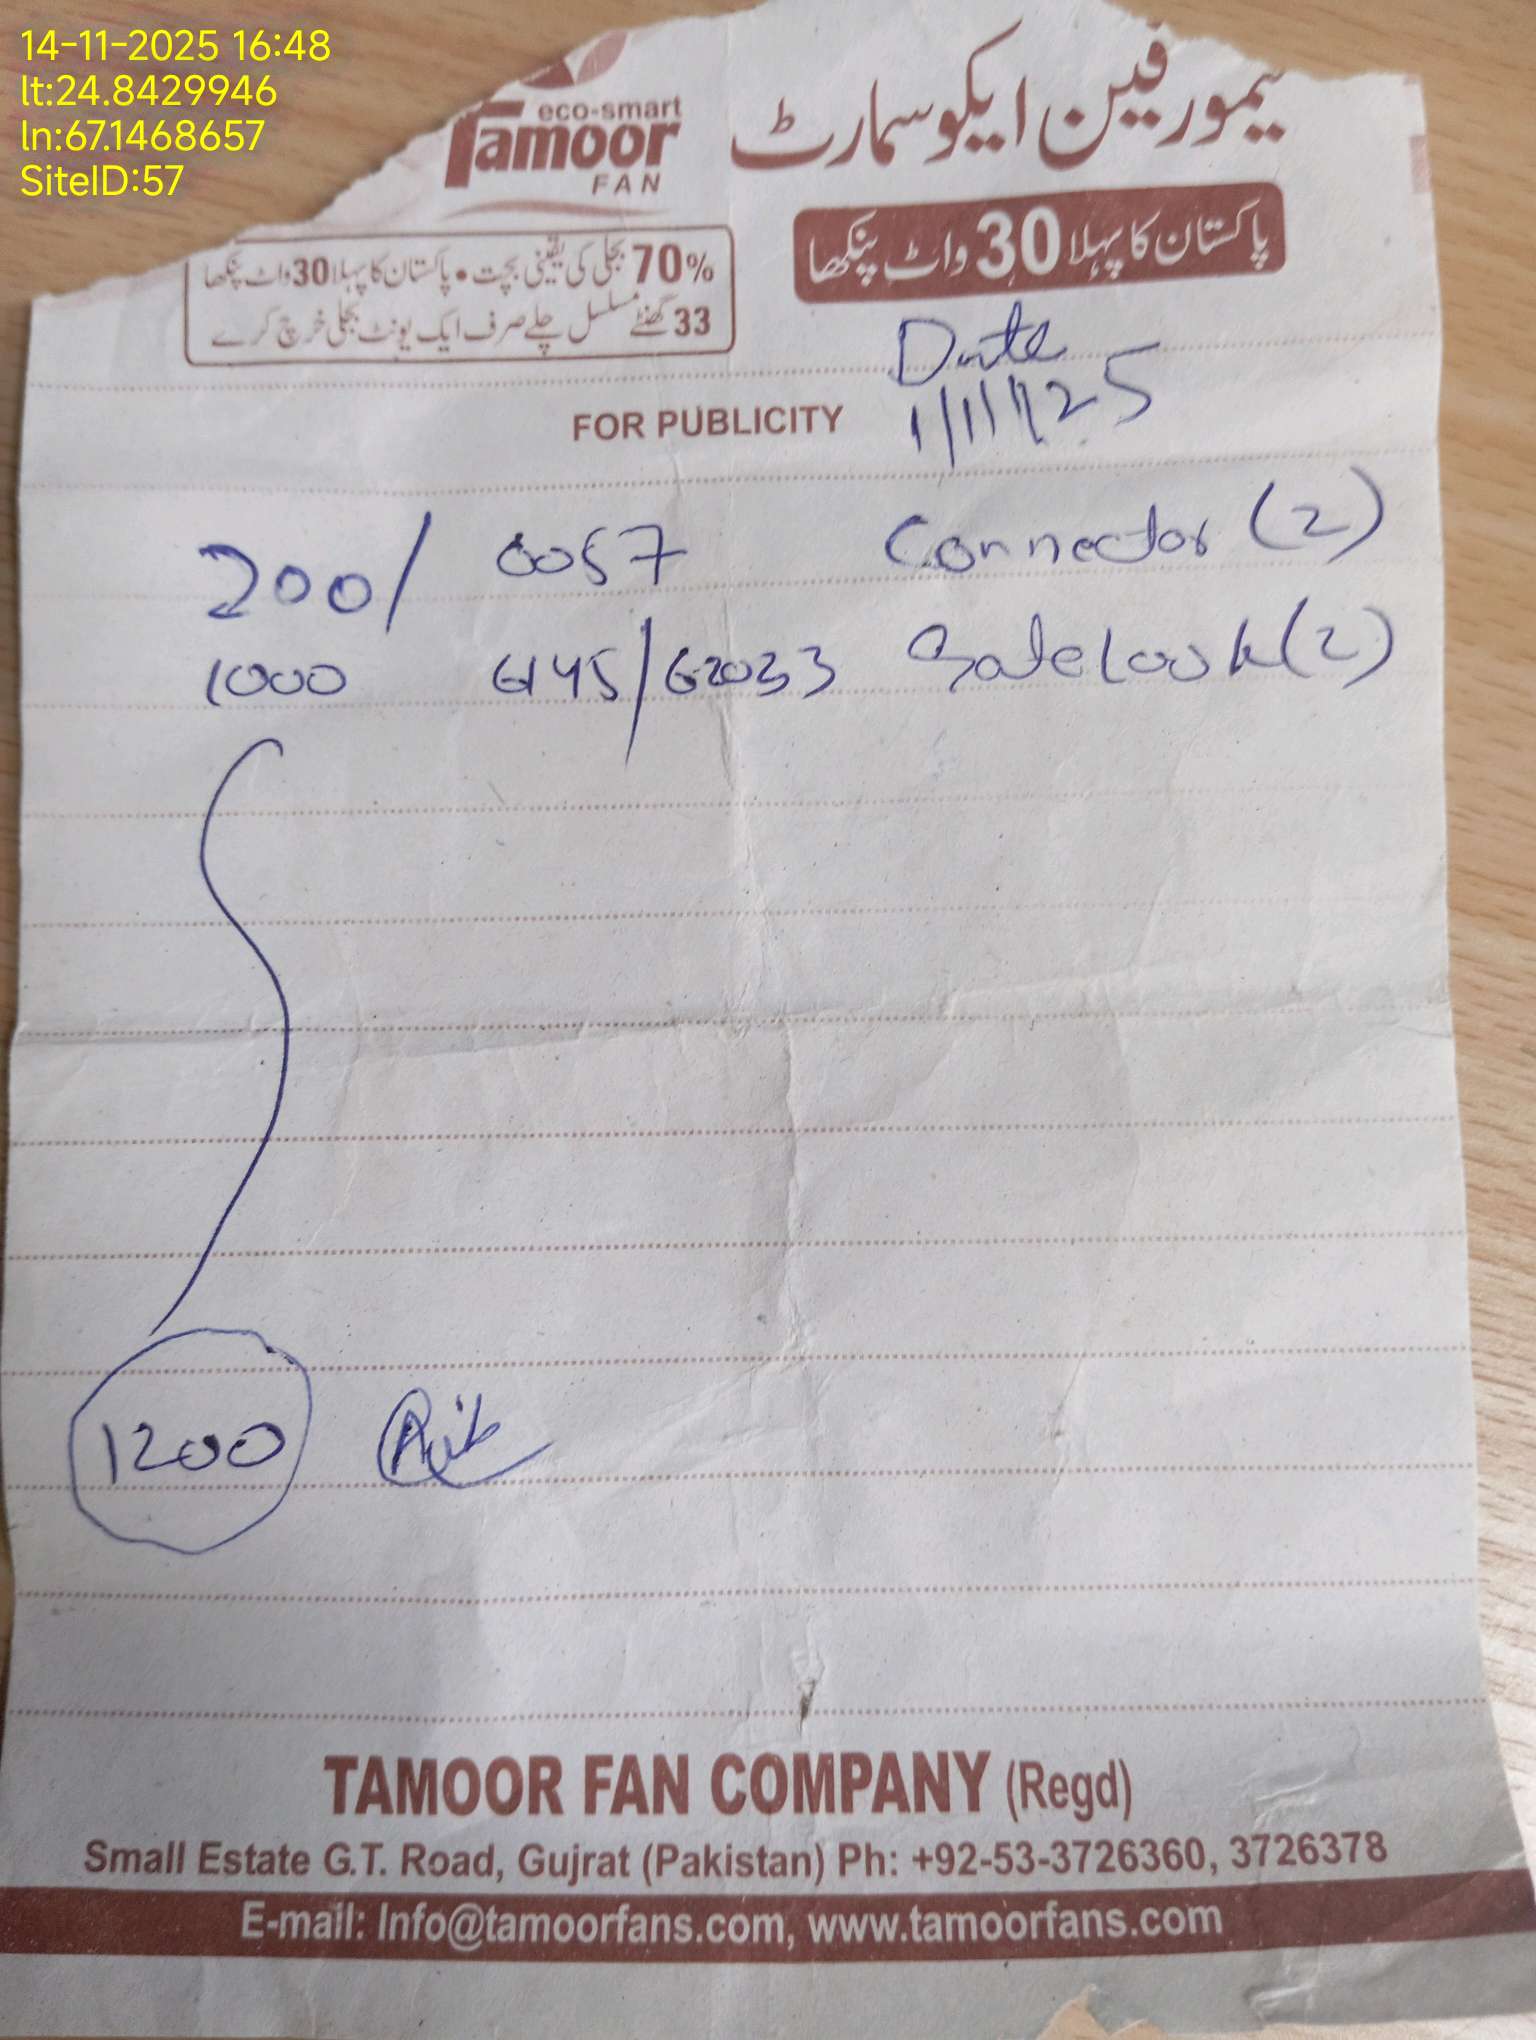 14-11-2025 16:48
lt:24.8429946
ln:67.1468657
SiteID:57
eco-smart
Tamoor
FAN
تیمور فین ایکو سمارٹ
پاکستان کا پہلا 30 واٹ پنکھا
70% بجلی کی یقینی بچت • پاکستان کا پہلا 30 واٹ پنکھا
33 گھنٹے مسلسل چلے صرف ایک یونٹ بجلی خرچ کرے
Date
FOR PUBLICITY
200/ 0057 Connector (2)
1000 6145/62033 (2)
1200
TAMOOR FAN COMPANY (Regd)
Small Estate G.T. Road, Gujrat (Pakistan) Ph: +92-53-3726360, 3726378
E-mail: Info@tamoorfans.com, www.tamoorfans.com